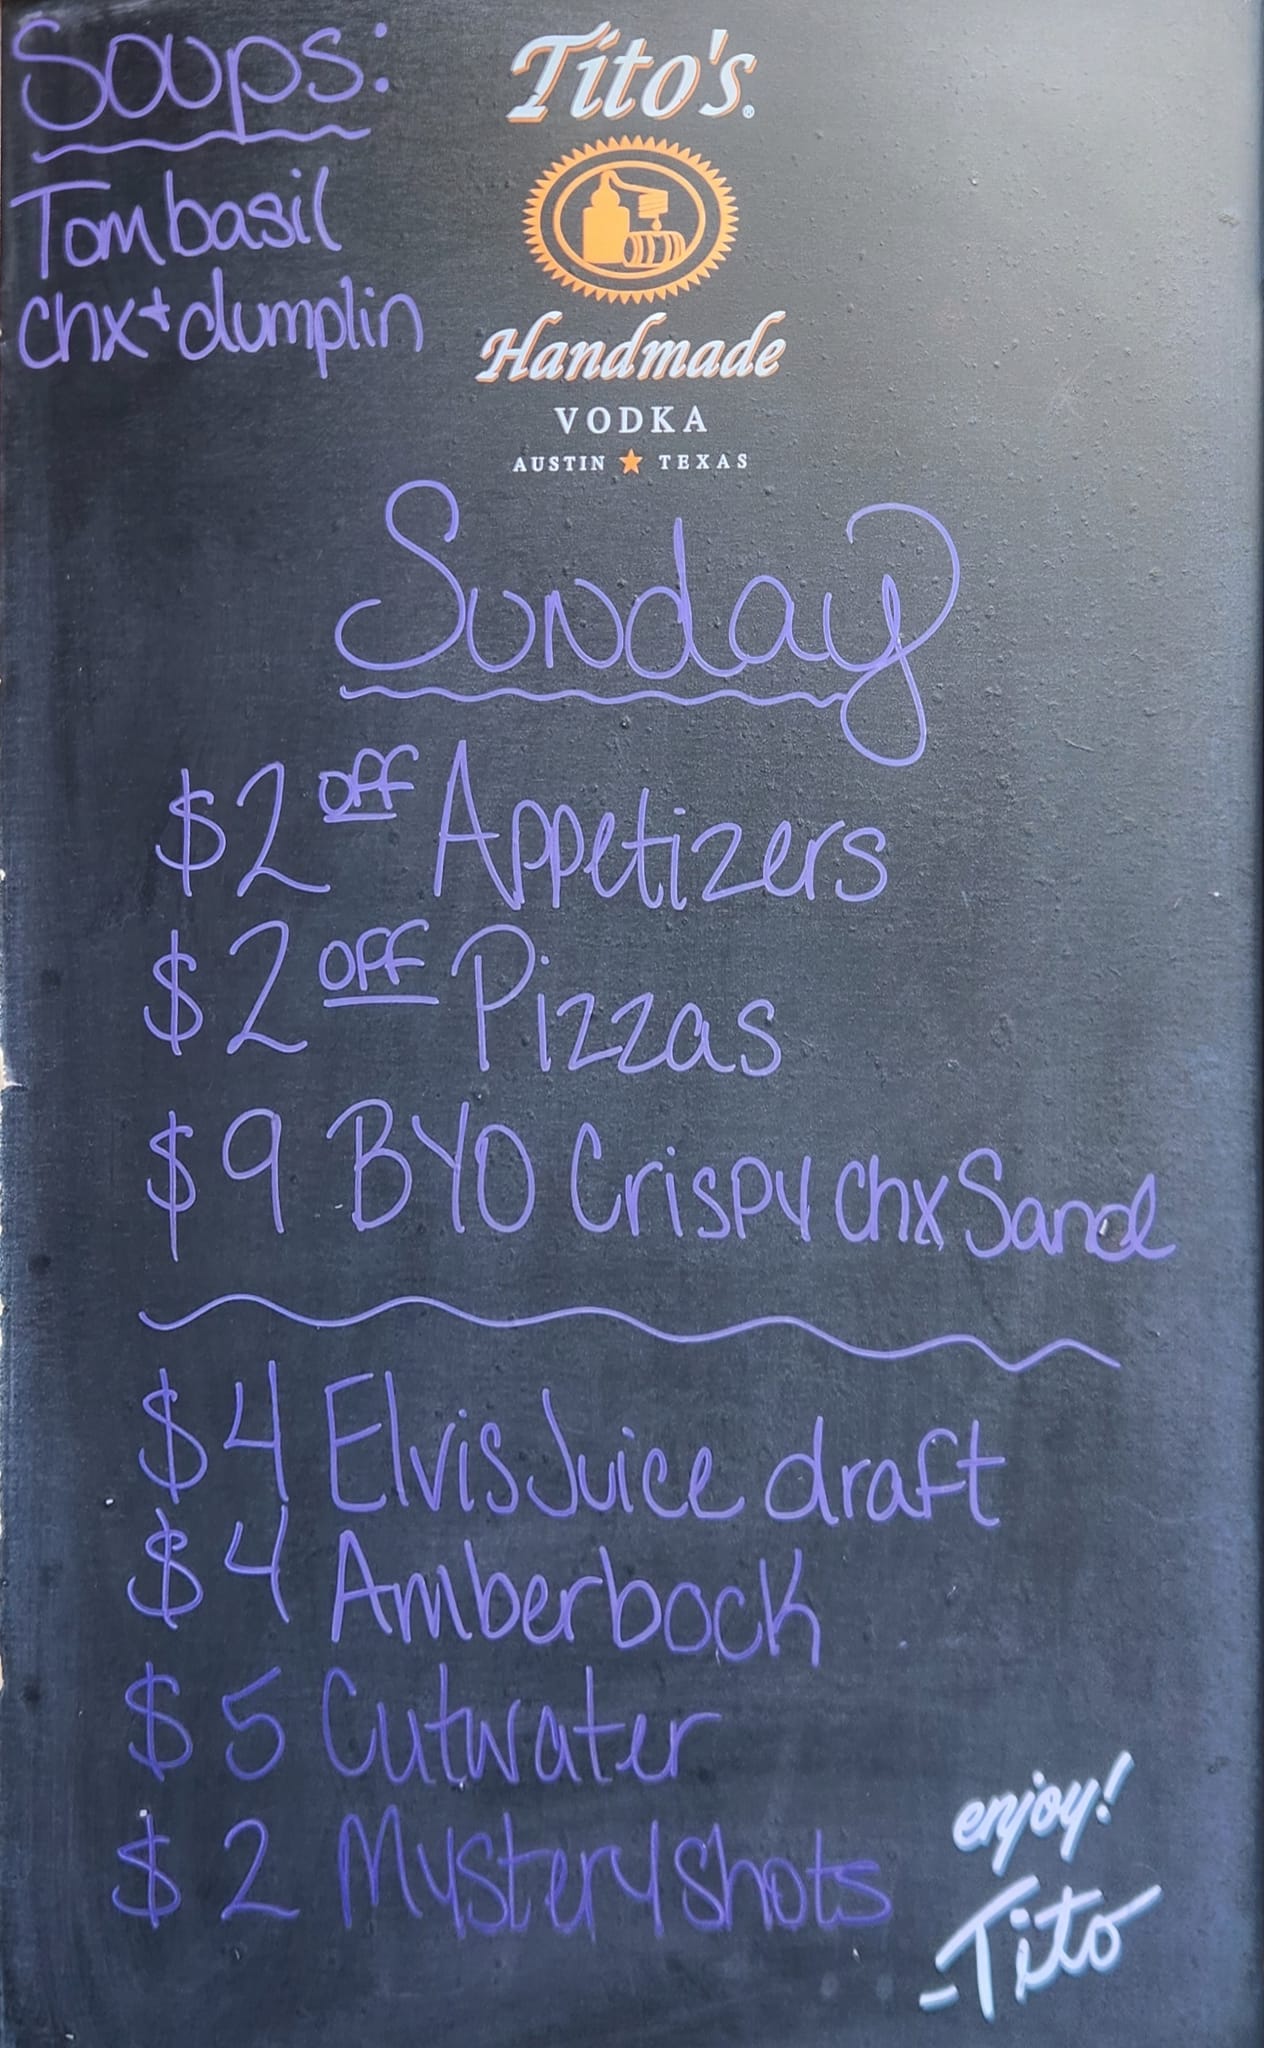 Soups:
Tom basil
chx + dumplin
Tito's®
Handmade
VODKA
AUSTIN ★ TEXAS
Sunday
$2 off Appetizers
$2 off Pizzas
$9 BYO Crispy chx Sand
$4 Elvis Juice draft
$4 Amberbock
$5 Cutwater
$2 Mystery shots
enjoy!
-Tito